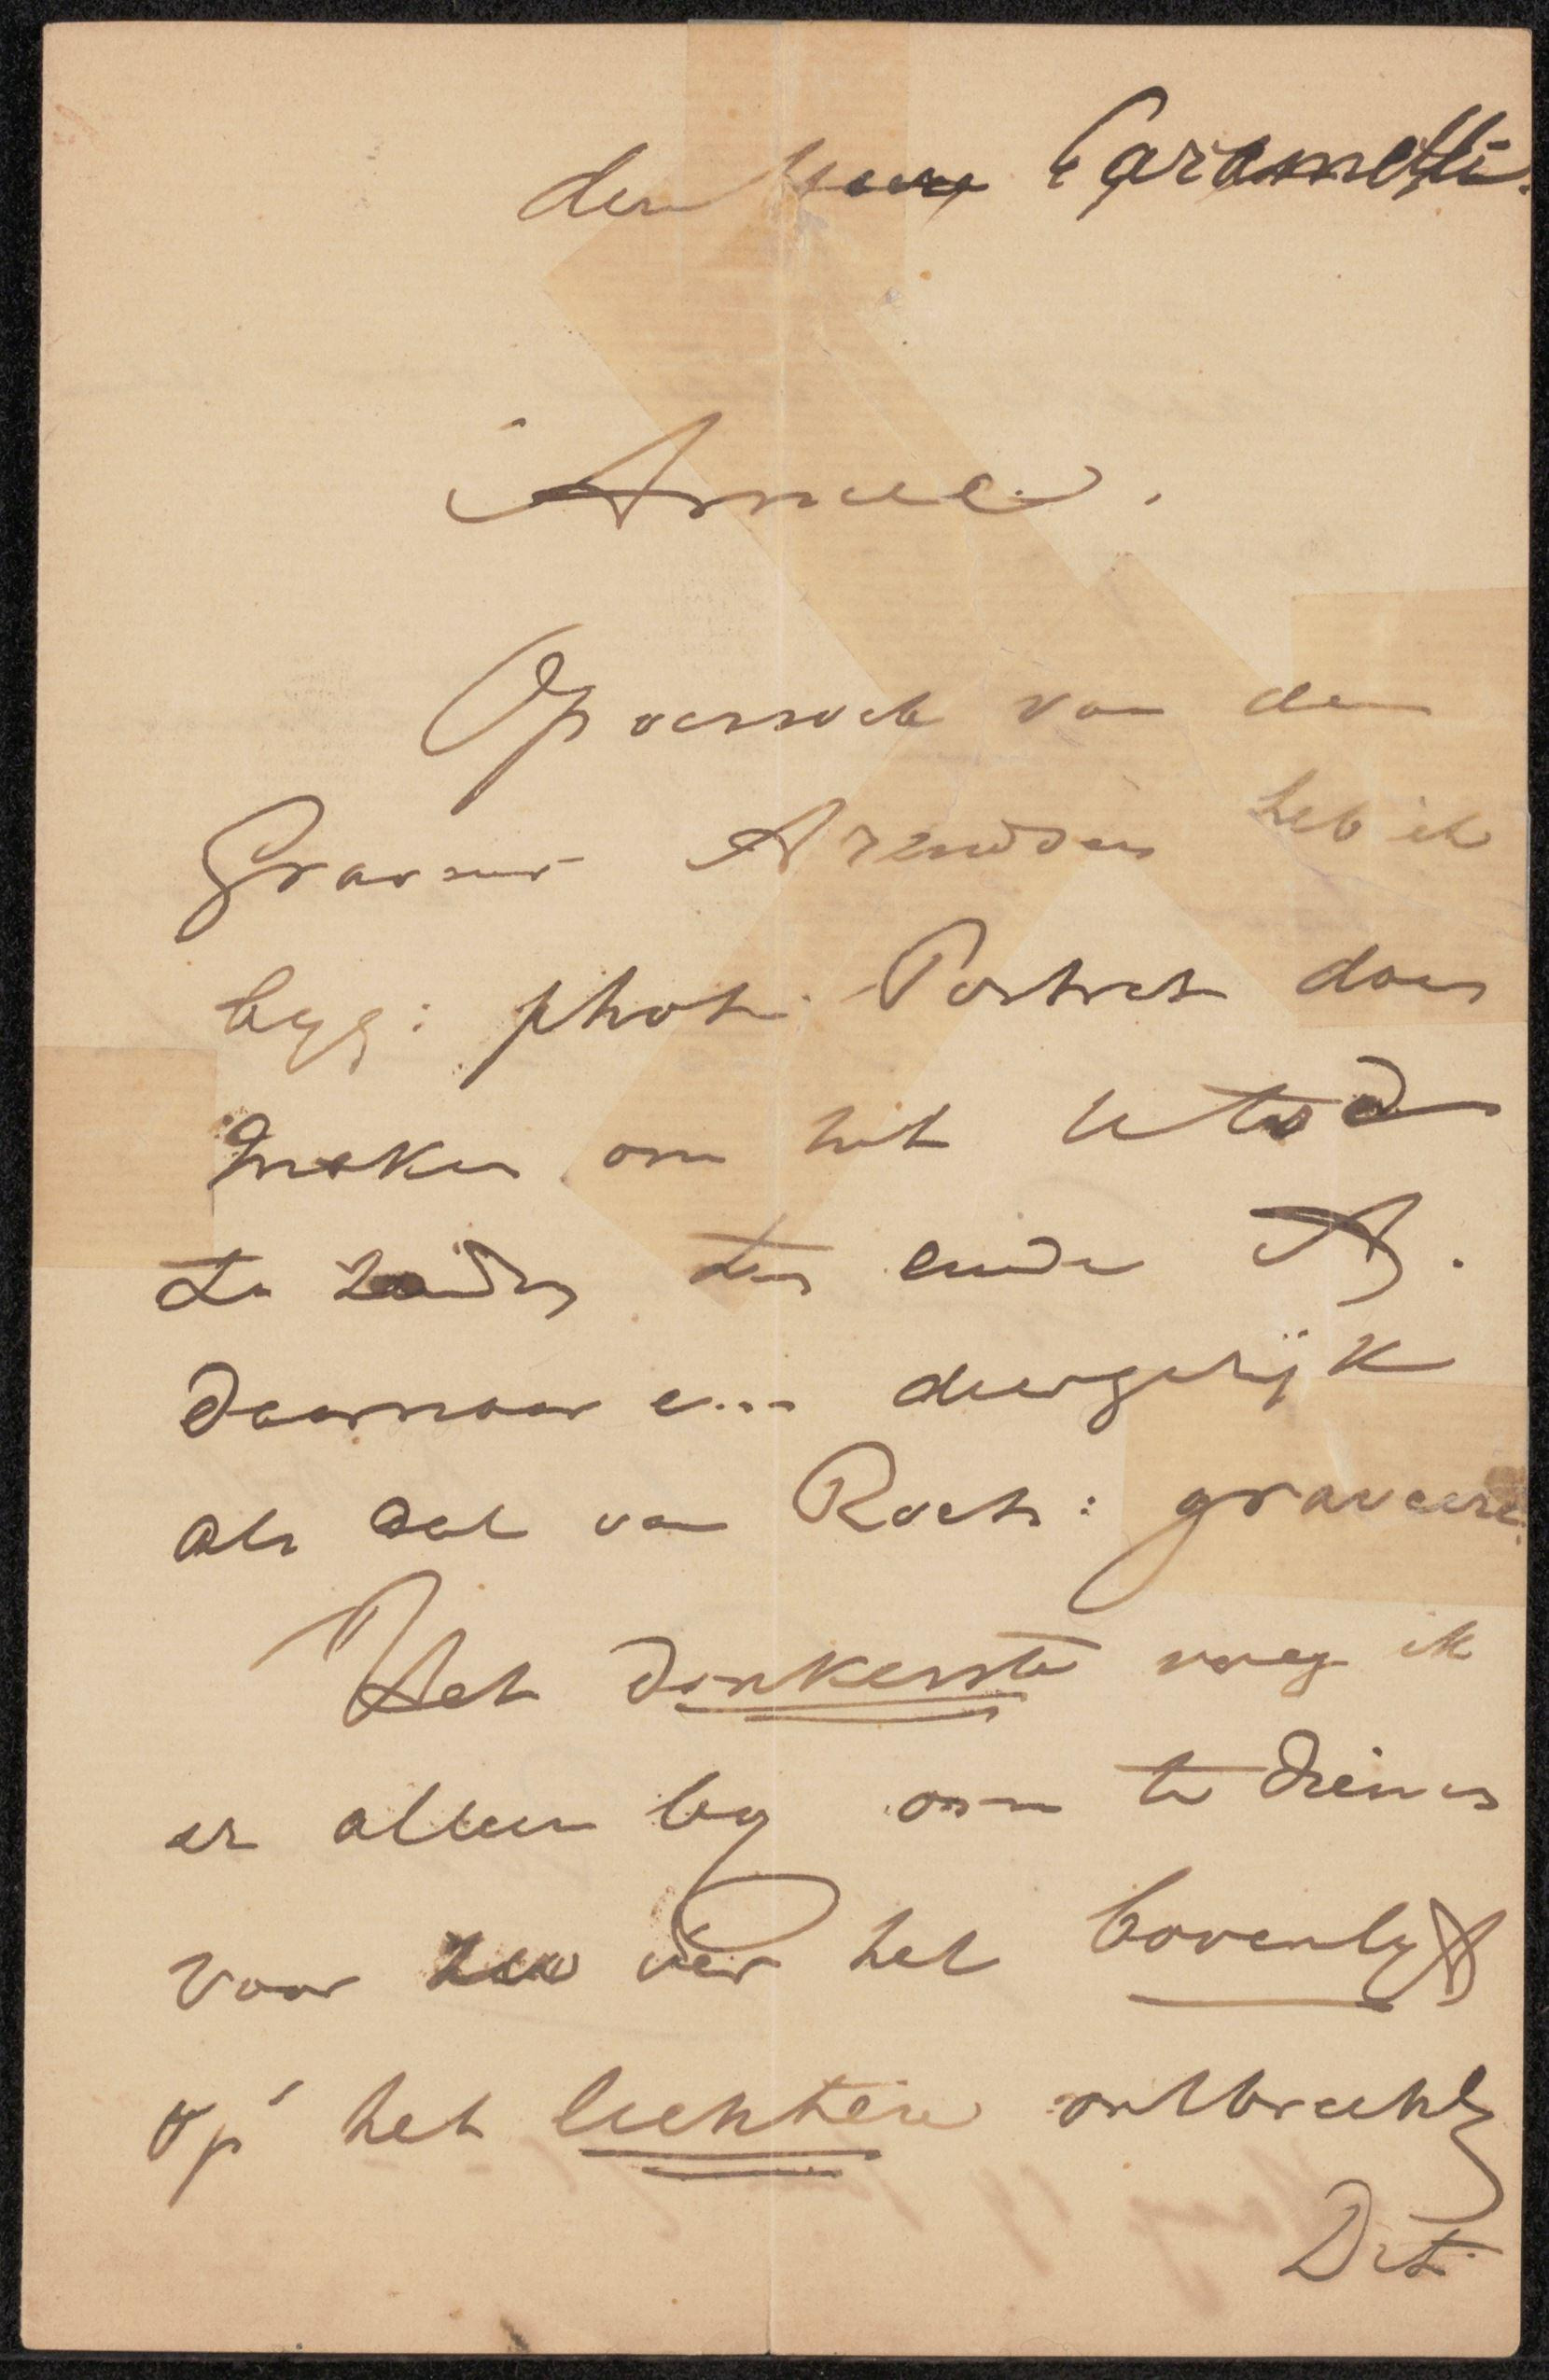 den Heere Caramelli.
Amice.
Op verzoek van den
Graveur Arendzen heb ik
byg: phot. Portret doen
maken om het U toe
te zenden ten einde A.
daarnaar een dergelijk
als dat van Roch: graveere.
Het donkerste voeg ik
er alleen by om te dienen
voor het
op het lichtere ontbreekt
Dit